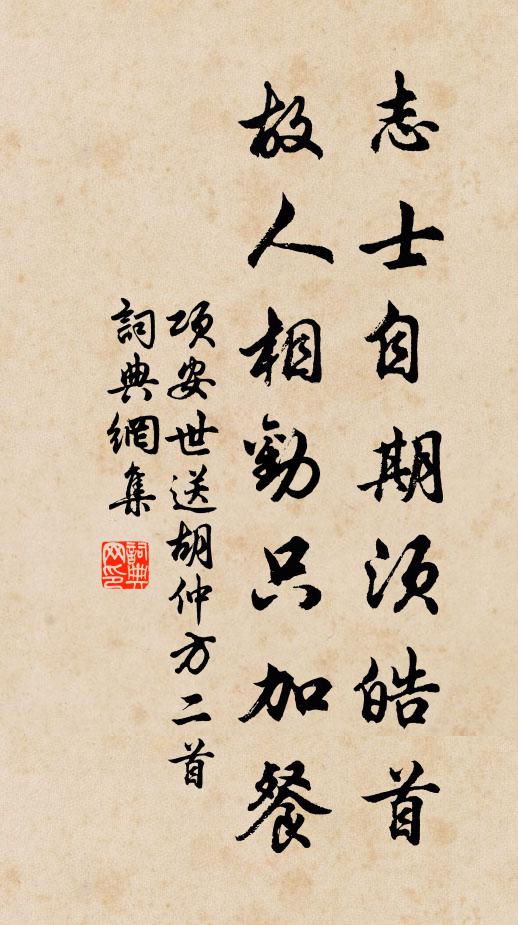 志士自期須皓首
故人相勸只加餐
項安世送胡仲方二首
詞典網集
詞典网印